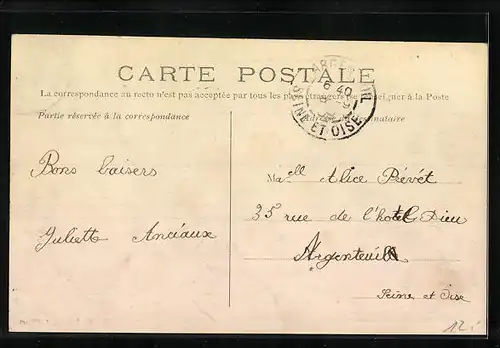 CARTE POSTALE
La correspondance au recto n'est pas acceptée par tous les pays étrangers (se renseigner à la Poste
Partie réservée à la correspondance
Adresse du destinataire
ARGENTEUIL
6 40
SEINE ET OISE
Bons baisers
Juliette Anciaux
Mell Alice Prévét
35 rue de l'hotel Dieu
Argenteuil
Seine et Oise
12.-